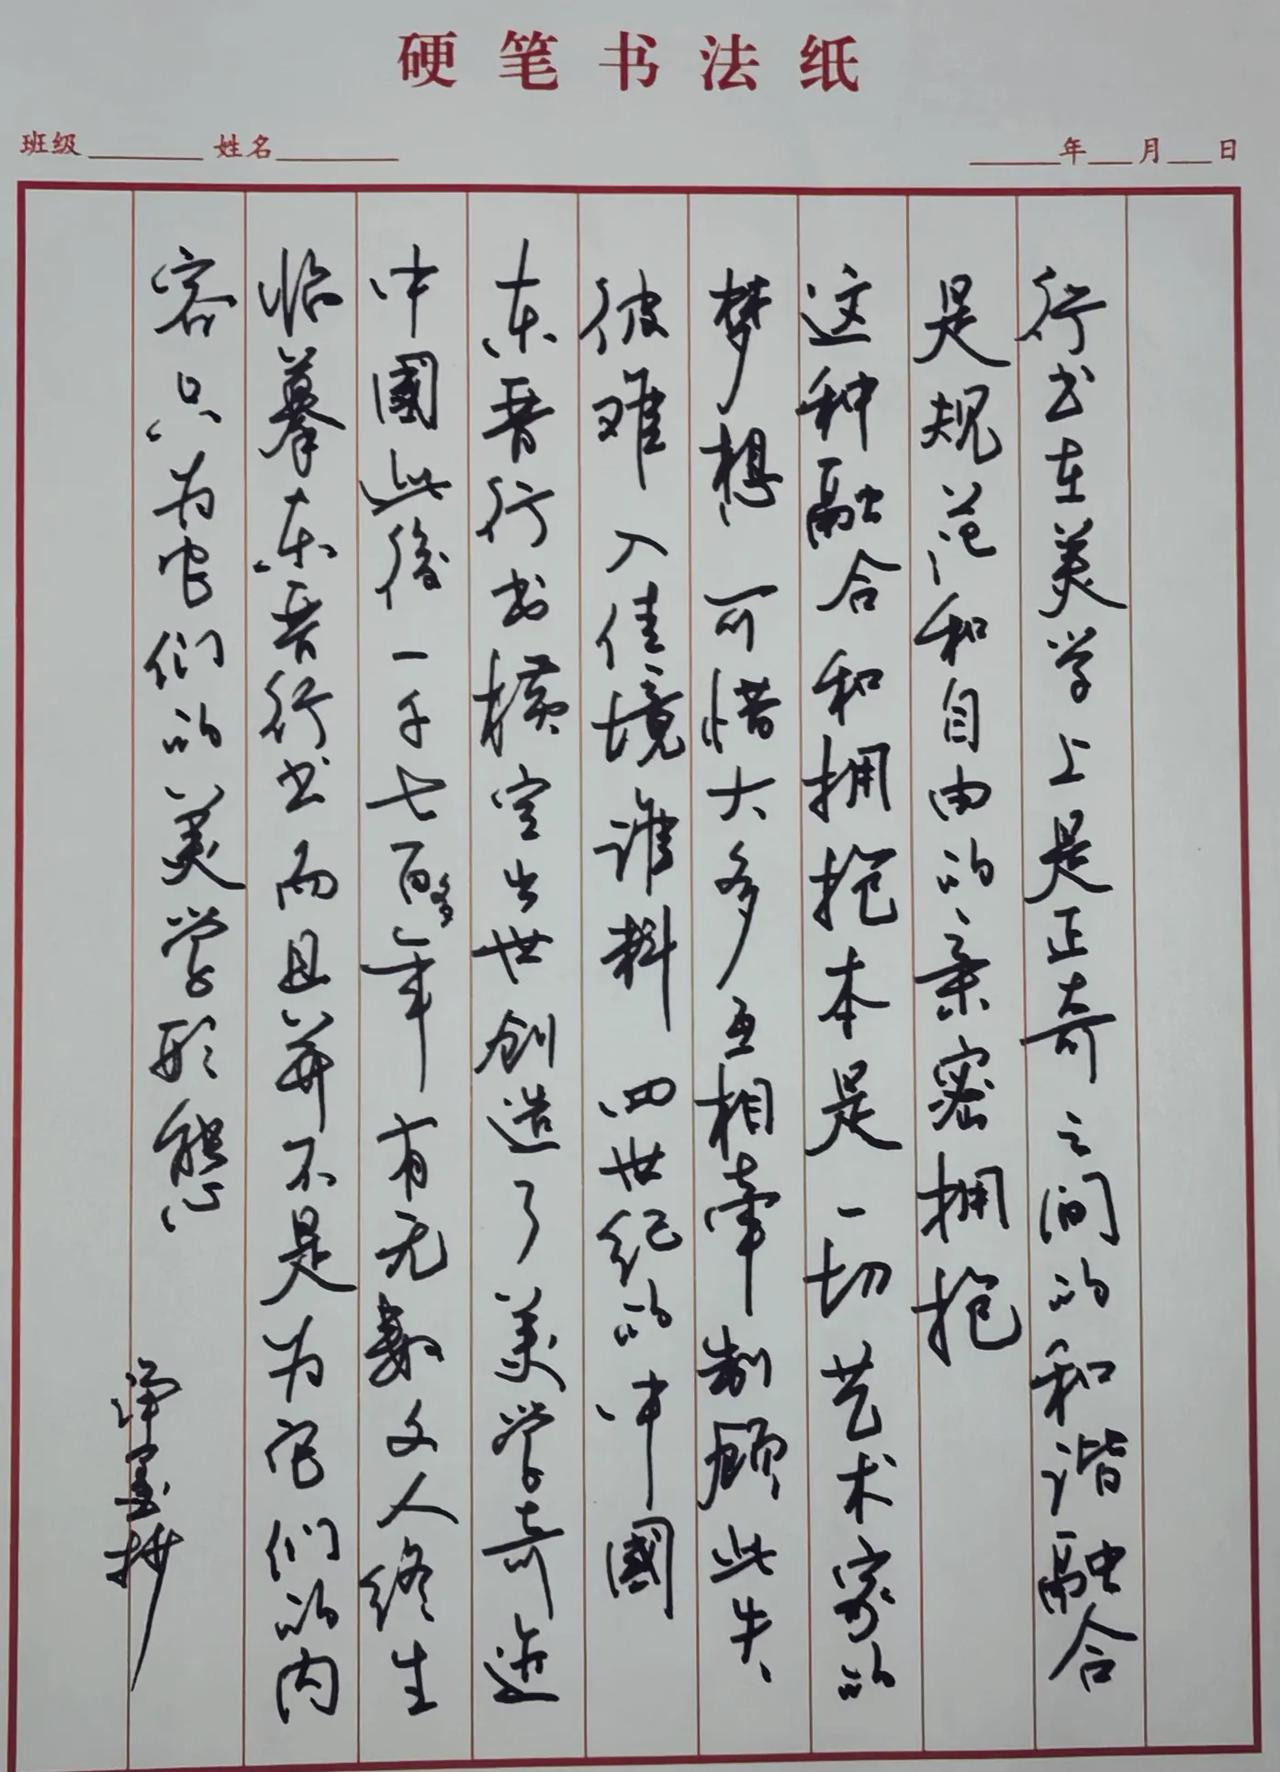 硬笔书法纸
班级 姓名 年 月 日
行书在美学上是正奇之间的和谐融合
是规范和自由的亲密拥抱
这种融合和拥抱本是一切艺术家的
梦想 可惜大多互相牵制顾此失
彼难 入佳境谁料 四世纪的中國
东晋行书横空出世创造了美学奇迹
中國此後一千七百多年有无数文人终生
临摹东晋行书而且并不是为它们的内
容只为它们的美学形態
抄